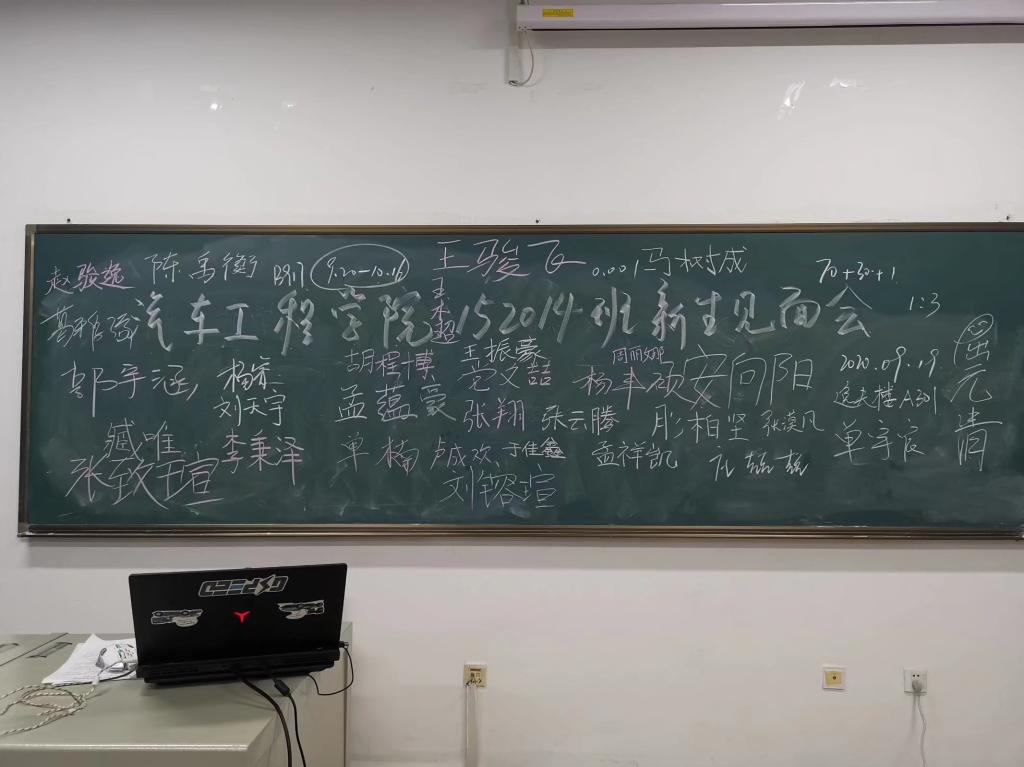 赵骏逸 陈禹衡 B917 9.20-10.16 王骏飞 0.001 马树成 70+30+1
王术超
汽车工程学院152014班新生见面会 1:3
胡程博 王振豪 周丽娜 2020.09.19
郭宇涵 杨森 孟蕴豪 党文喆 杨丰硕 安向阳 逸夫楼A301
刘天宇 张翔 张云腾 彤相坚 张漠风 单宇辰
臧唯 李秉泽 单楠 卢成欢 于佳鑫 孟祥凯
张致瑄 刘镕瑄
元清
GSPEED